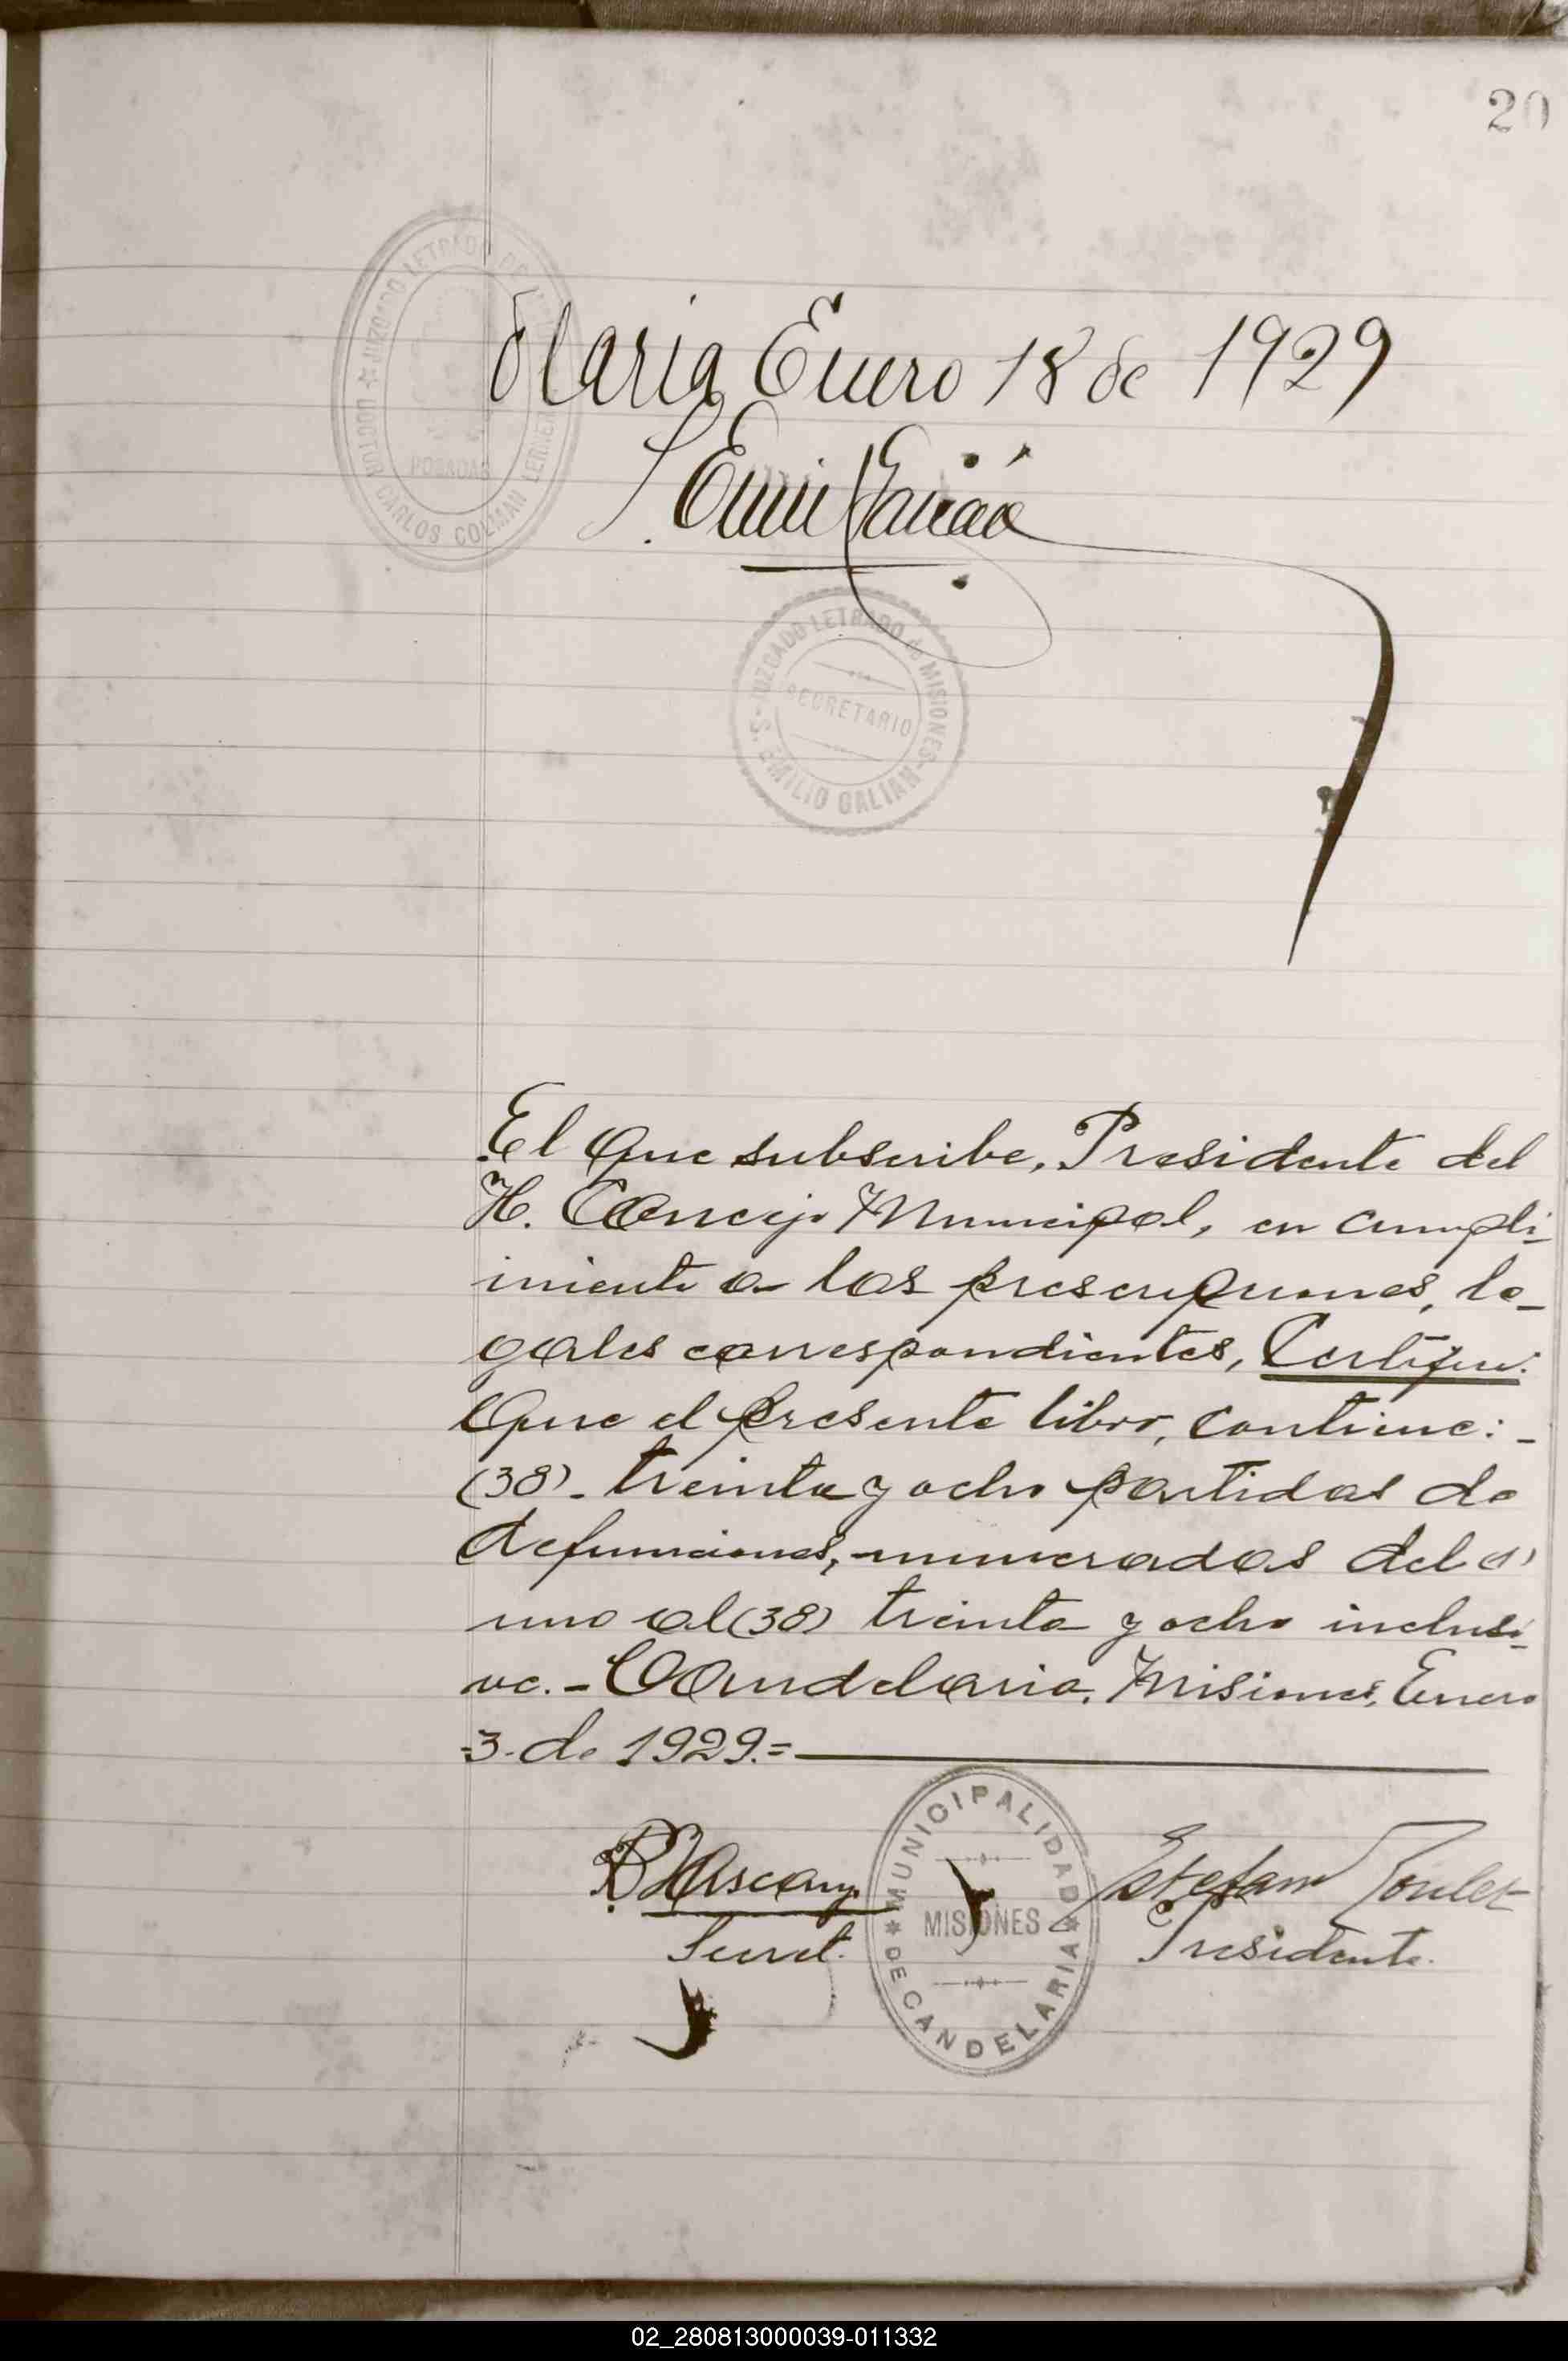 20
olaria Enero 18 de 1929
JUZGADO LETRADO DE
DOCTOR CARLOS COLMAN LERNER
POSADAS
JUZGADO LETRADO de MISIONES
SECRETARIO
S. EMILIO GALIAN
El que subscribe, Presidente del
H. Concejo Municipal, en cumpli-
miento a las prescripciones, le-
gales correspondientes, Certifico:
Que el presente libro, contiene: -
(38) - treinta y ocho partidas de
defunciones, numeradas del (1)
uno al (38) treinta y ocho inclusi-
ve. - Candelaria, Misiones, Enero
-3- de 1929.=
MUNICIPALIDAD
MISIONES
DE CANDELARIA
Secret.
Estefan
Presidente.
02_280813000039-011332